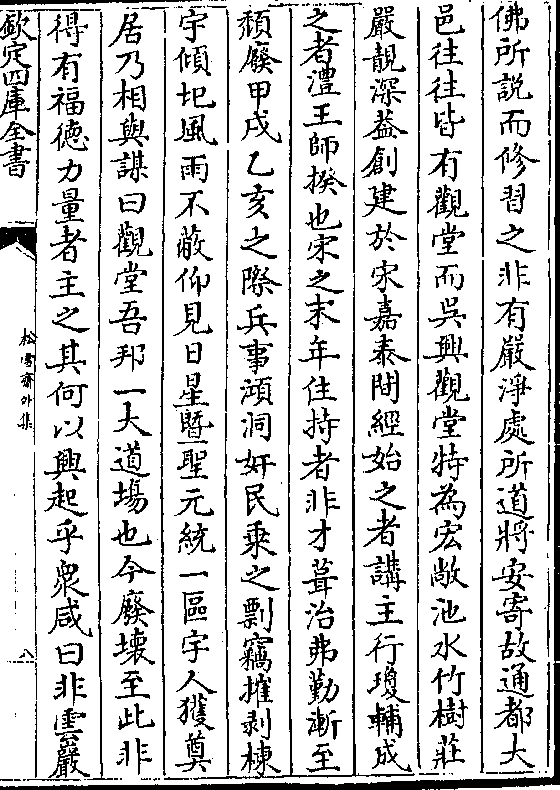 佛所說而修習之非有嚴淨處所道將安寄故通都大
邑往往皆有觀堂而吳興觀堂特為宏敞池水竹樹莊
嚴靚深葢創建於宋嘉泰間經始之者講主行瓊輔成
之者澧王師揆也宋之末年住持者非才葺治弗勤漸至
頽廢甲戌乙亥之際兵事澒洞奸民乗之剽竊摧剥棟
宇傾圮風雨不蔽仰見日星曁聖元統一區宇人獲奠
居乃相與謀曰觀堂吾邦一大道塲也今廢壞至此非
得有福徳力量者主之其何以興起乎衆咸曰非雲巖
欽定四庫全書
松雪齋外集
八